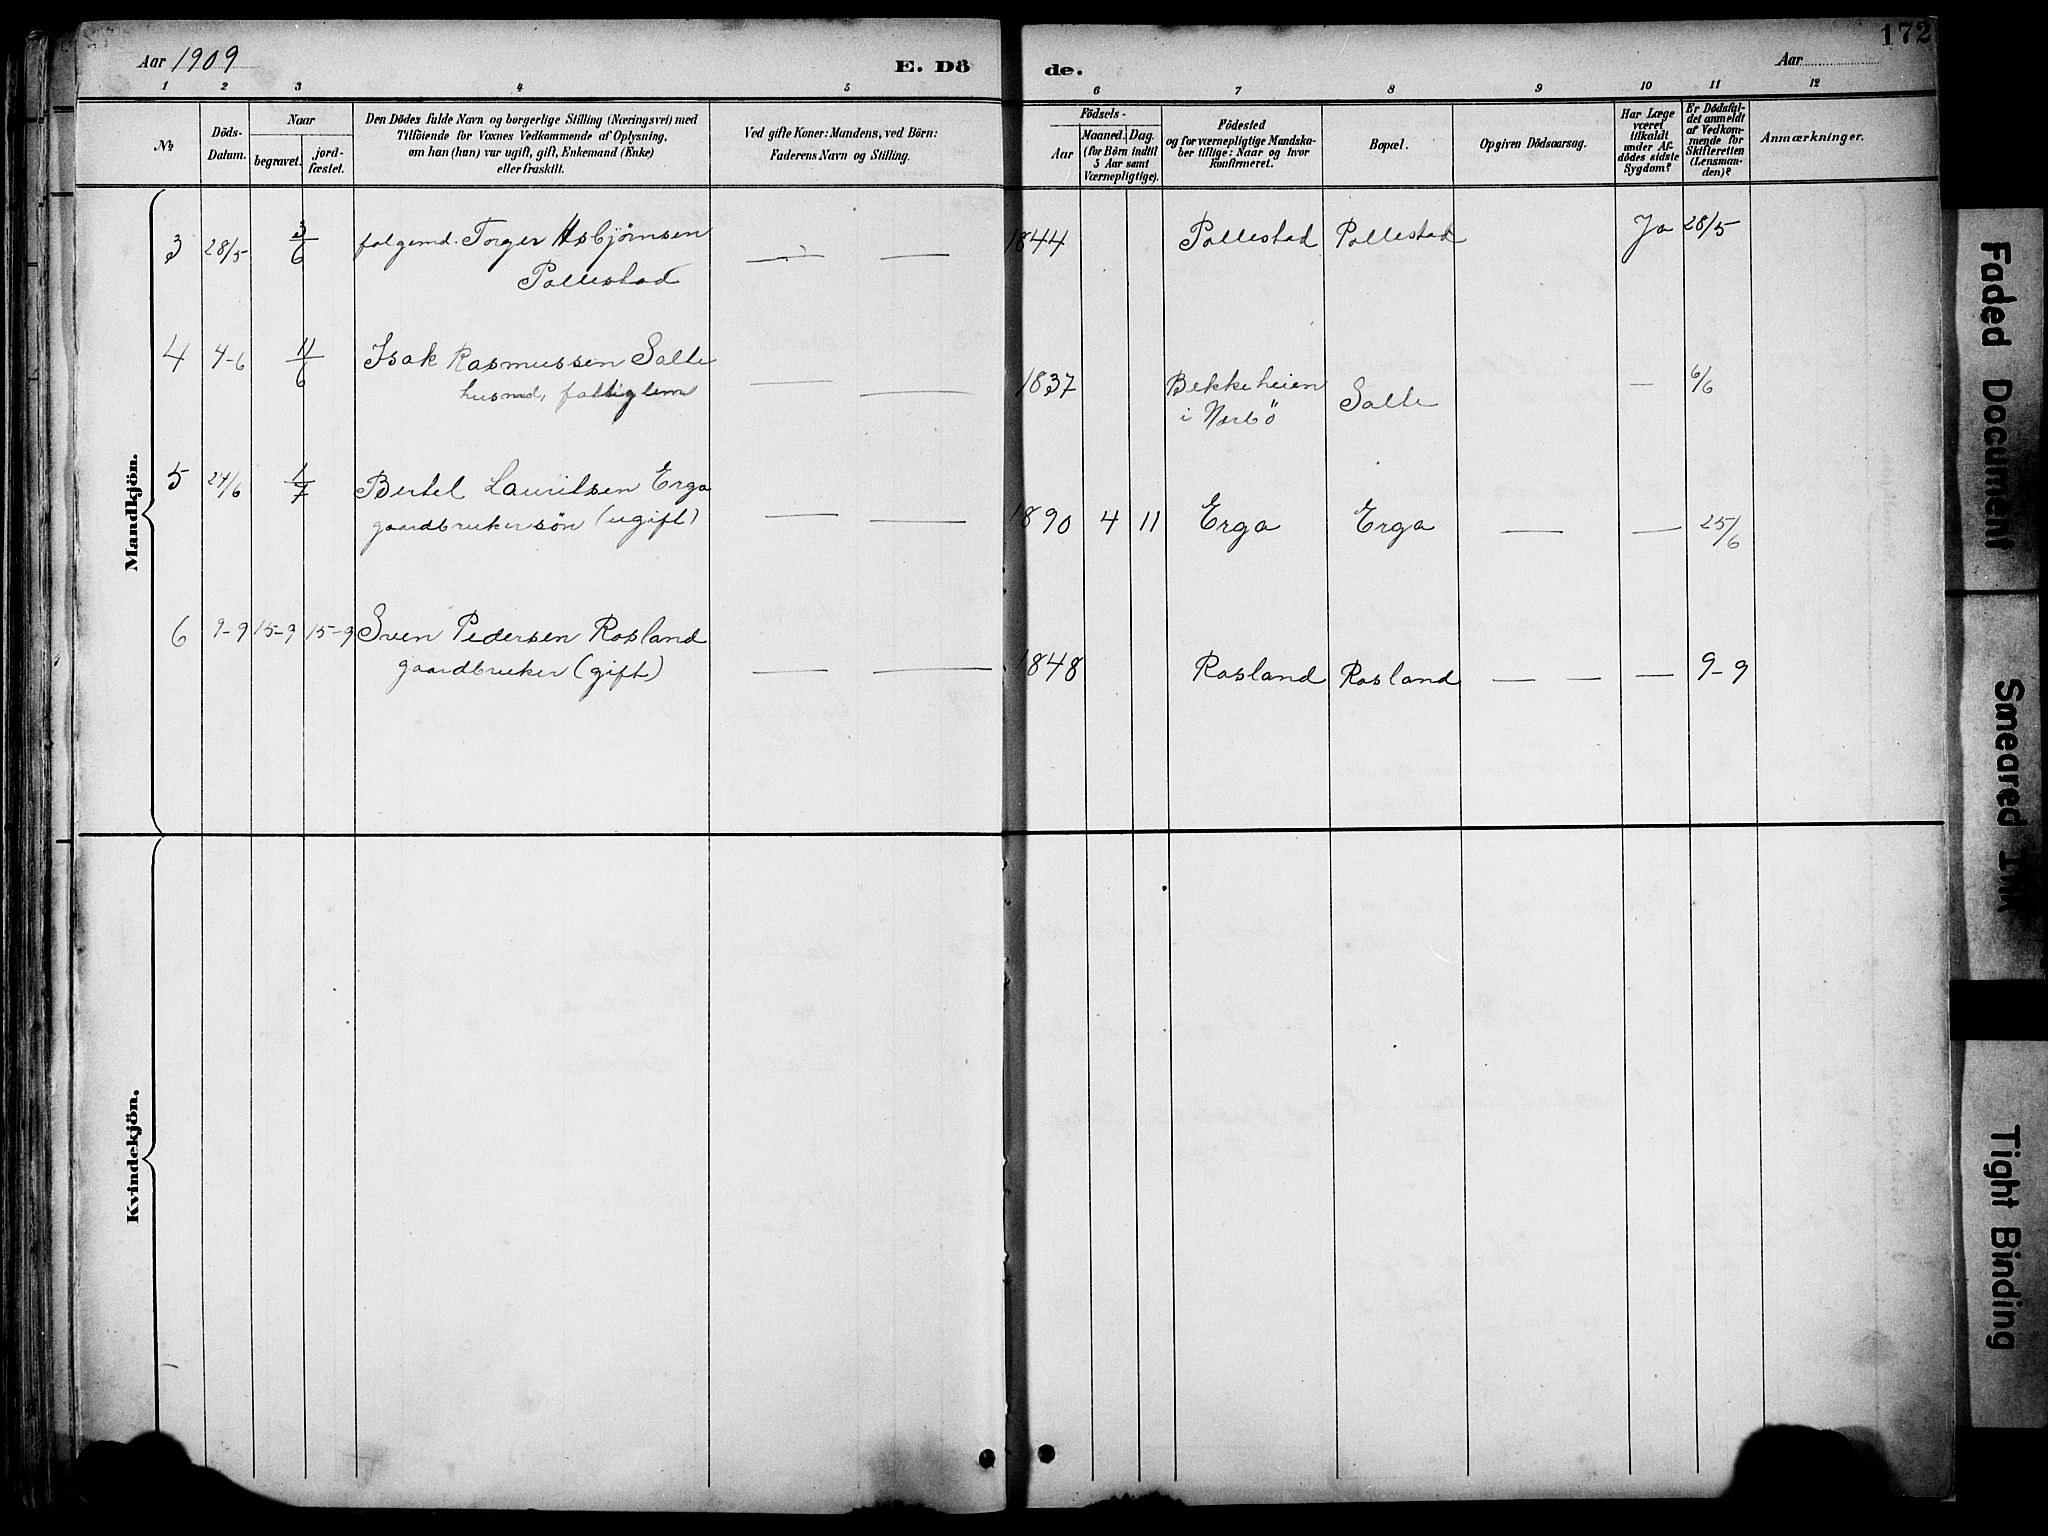 172
Aar 1909
E. Dö
de.
Aar
1 2 3 4 5 6 7 8 9 10 11 12
№
Döds-
Datum.
Naar
begravet.
jord-
fæstet.
Den Dödes fulde Navn og borgerlige Stilling (Næringsvei) med
Tilföiende for Voxnes Vedkommende af Oplysning,
om han (hun) var ugift, gift, Enkemand (Enke)
eller fraskilt.
Ved gifte Koner: Mandens, ved Börn:
Faderens Navn og Stilling.
Födsels-
Aar
Maaned. Dag.
(for Börn indtil
5 Aar samt
Værnepligtige).
Födested
og for værnepligtige Mandska-
ber tillige: Naar og hvor
konfirmeret.
Bopæl.
Opgiven Dödsaarsag.
Har Læge
været
tilkaldt
under Af-
dödes sidste
Sygdom?
Er Dödsfal-
det anmeldt
af Vedkom-
mende for
Skifteretten
(Lensman-
den)?
Anmærkninger.
Mandkjön.
3 28/5 3/6 folgemd. Torger Asbjörnsen
Pollestad
— — 1844 Pollestad Pollestad Ja 28/5
4 4-6 11/6 Isak Rasmussen Salte
husmd, fattiglem
— — 1837 Bekkeheien
i Norbö
Salte — 6/6
5 24/6 1/7 Bertel Lauritsen Erga
gaardbrukersön (ugift)
— — 1890 4 11 Erga Erga — — 25/6
6 9-9 15-9 15-9 Sven Pedersen Rosland
gaardbruker (gift)
— — 1848 Rosland Rosland — — — 9-9
Kvindekjön.
Faded Document
Smeared Ink
Tight Binding